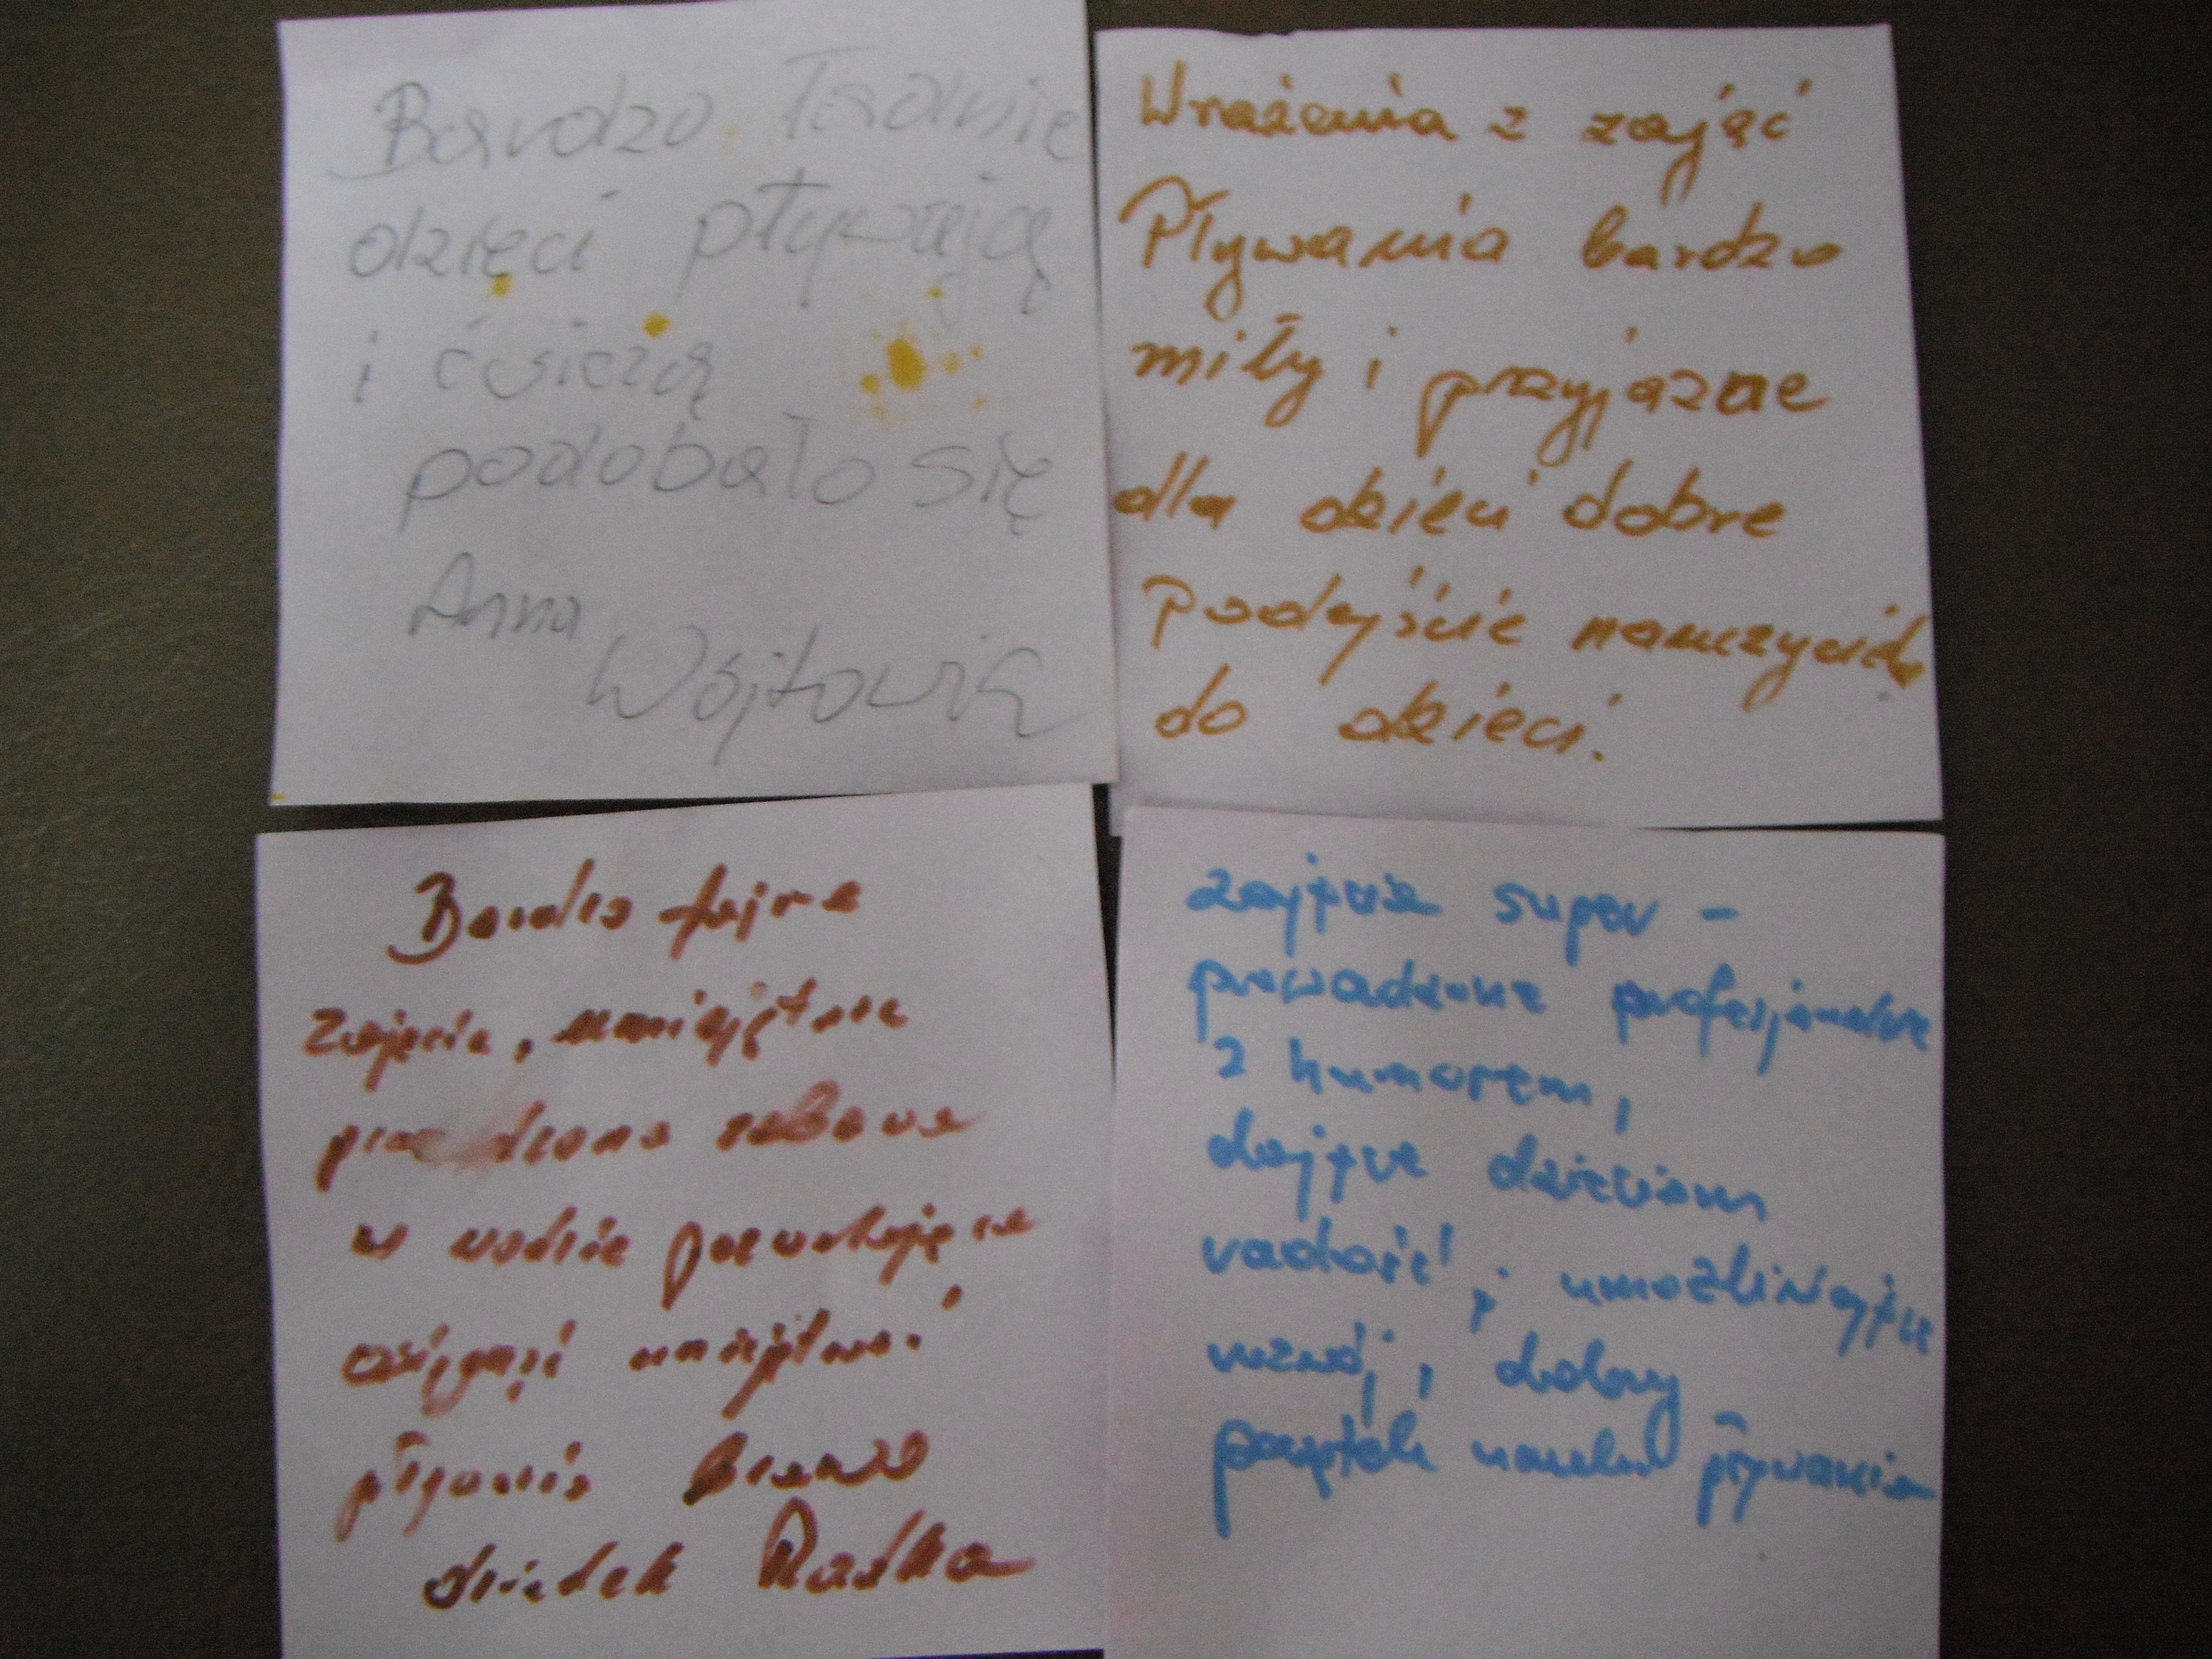 Bardzo Ładnie
dzięci pływają
i ćwiczą
podobało się
Anna
Wójtowicz
Wrażenia z zajęć
Pływania bardzo
miły i przyjazne
dla dzieci dobre
Podejście nauczyciela
do dzieci.
Bardzo fajne
zajęcia, umiejętnie
prowadzona zabawa
w wodzie pozwalająca
osiągnąć umiejętność
pływania brawo
dziadek Radka
Zajęcia super -
prowadzone profesjonalnie
z humorem,
dające dzieciom
radość i umożliwiające
rozwój, dobry
początek nauki pływania